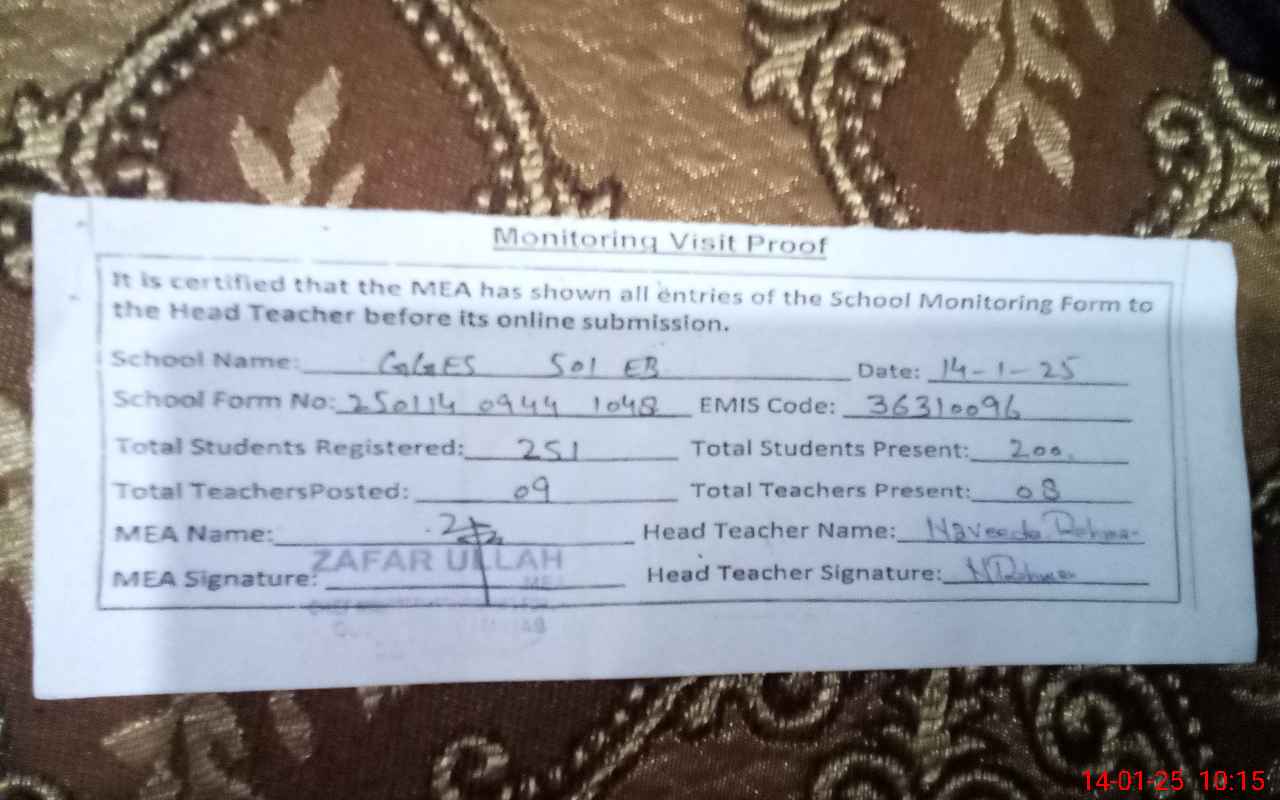 Monitoring Visit Proof
It is certified that the MEA has shown all entries of the School Monitoring Form to
the Head Teacher before its online submission.
School Name: GGES 501 EB Date: 14-1-25
School Form No: 250114 0944 1048 EMIS Code: 36310096
Total Students Registered: 251 Total Students Present: 200
Total TeachersPosted: 09 Total Teachers Present: 08
MEA Name: Head Teacher Name: Naveeda Rehman
ZAFAR ULLAH
MEA Signature: MEA Head Teacher Signature: NRehman
14-01-25 10:15